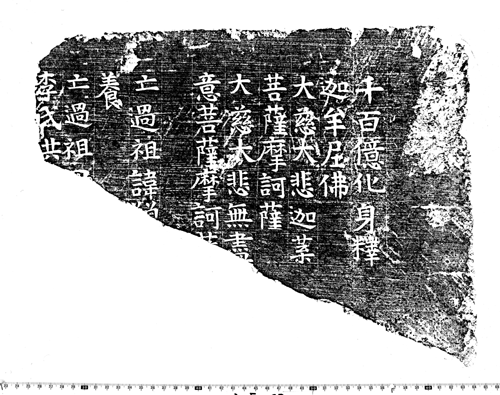 千百億化身釋
迦牟尼佛
大慈大悲迦葉
菩薩摩訶薩
大慈大悲無盡
意菩薩摩訶薩
亡過祖諱
養
亡過祖
李氏供